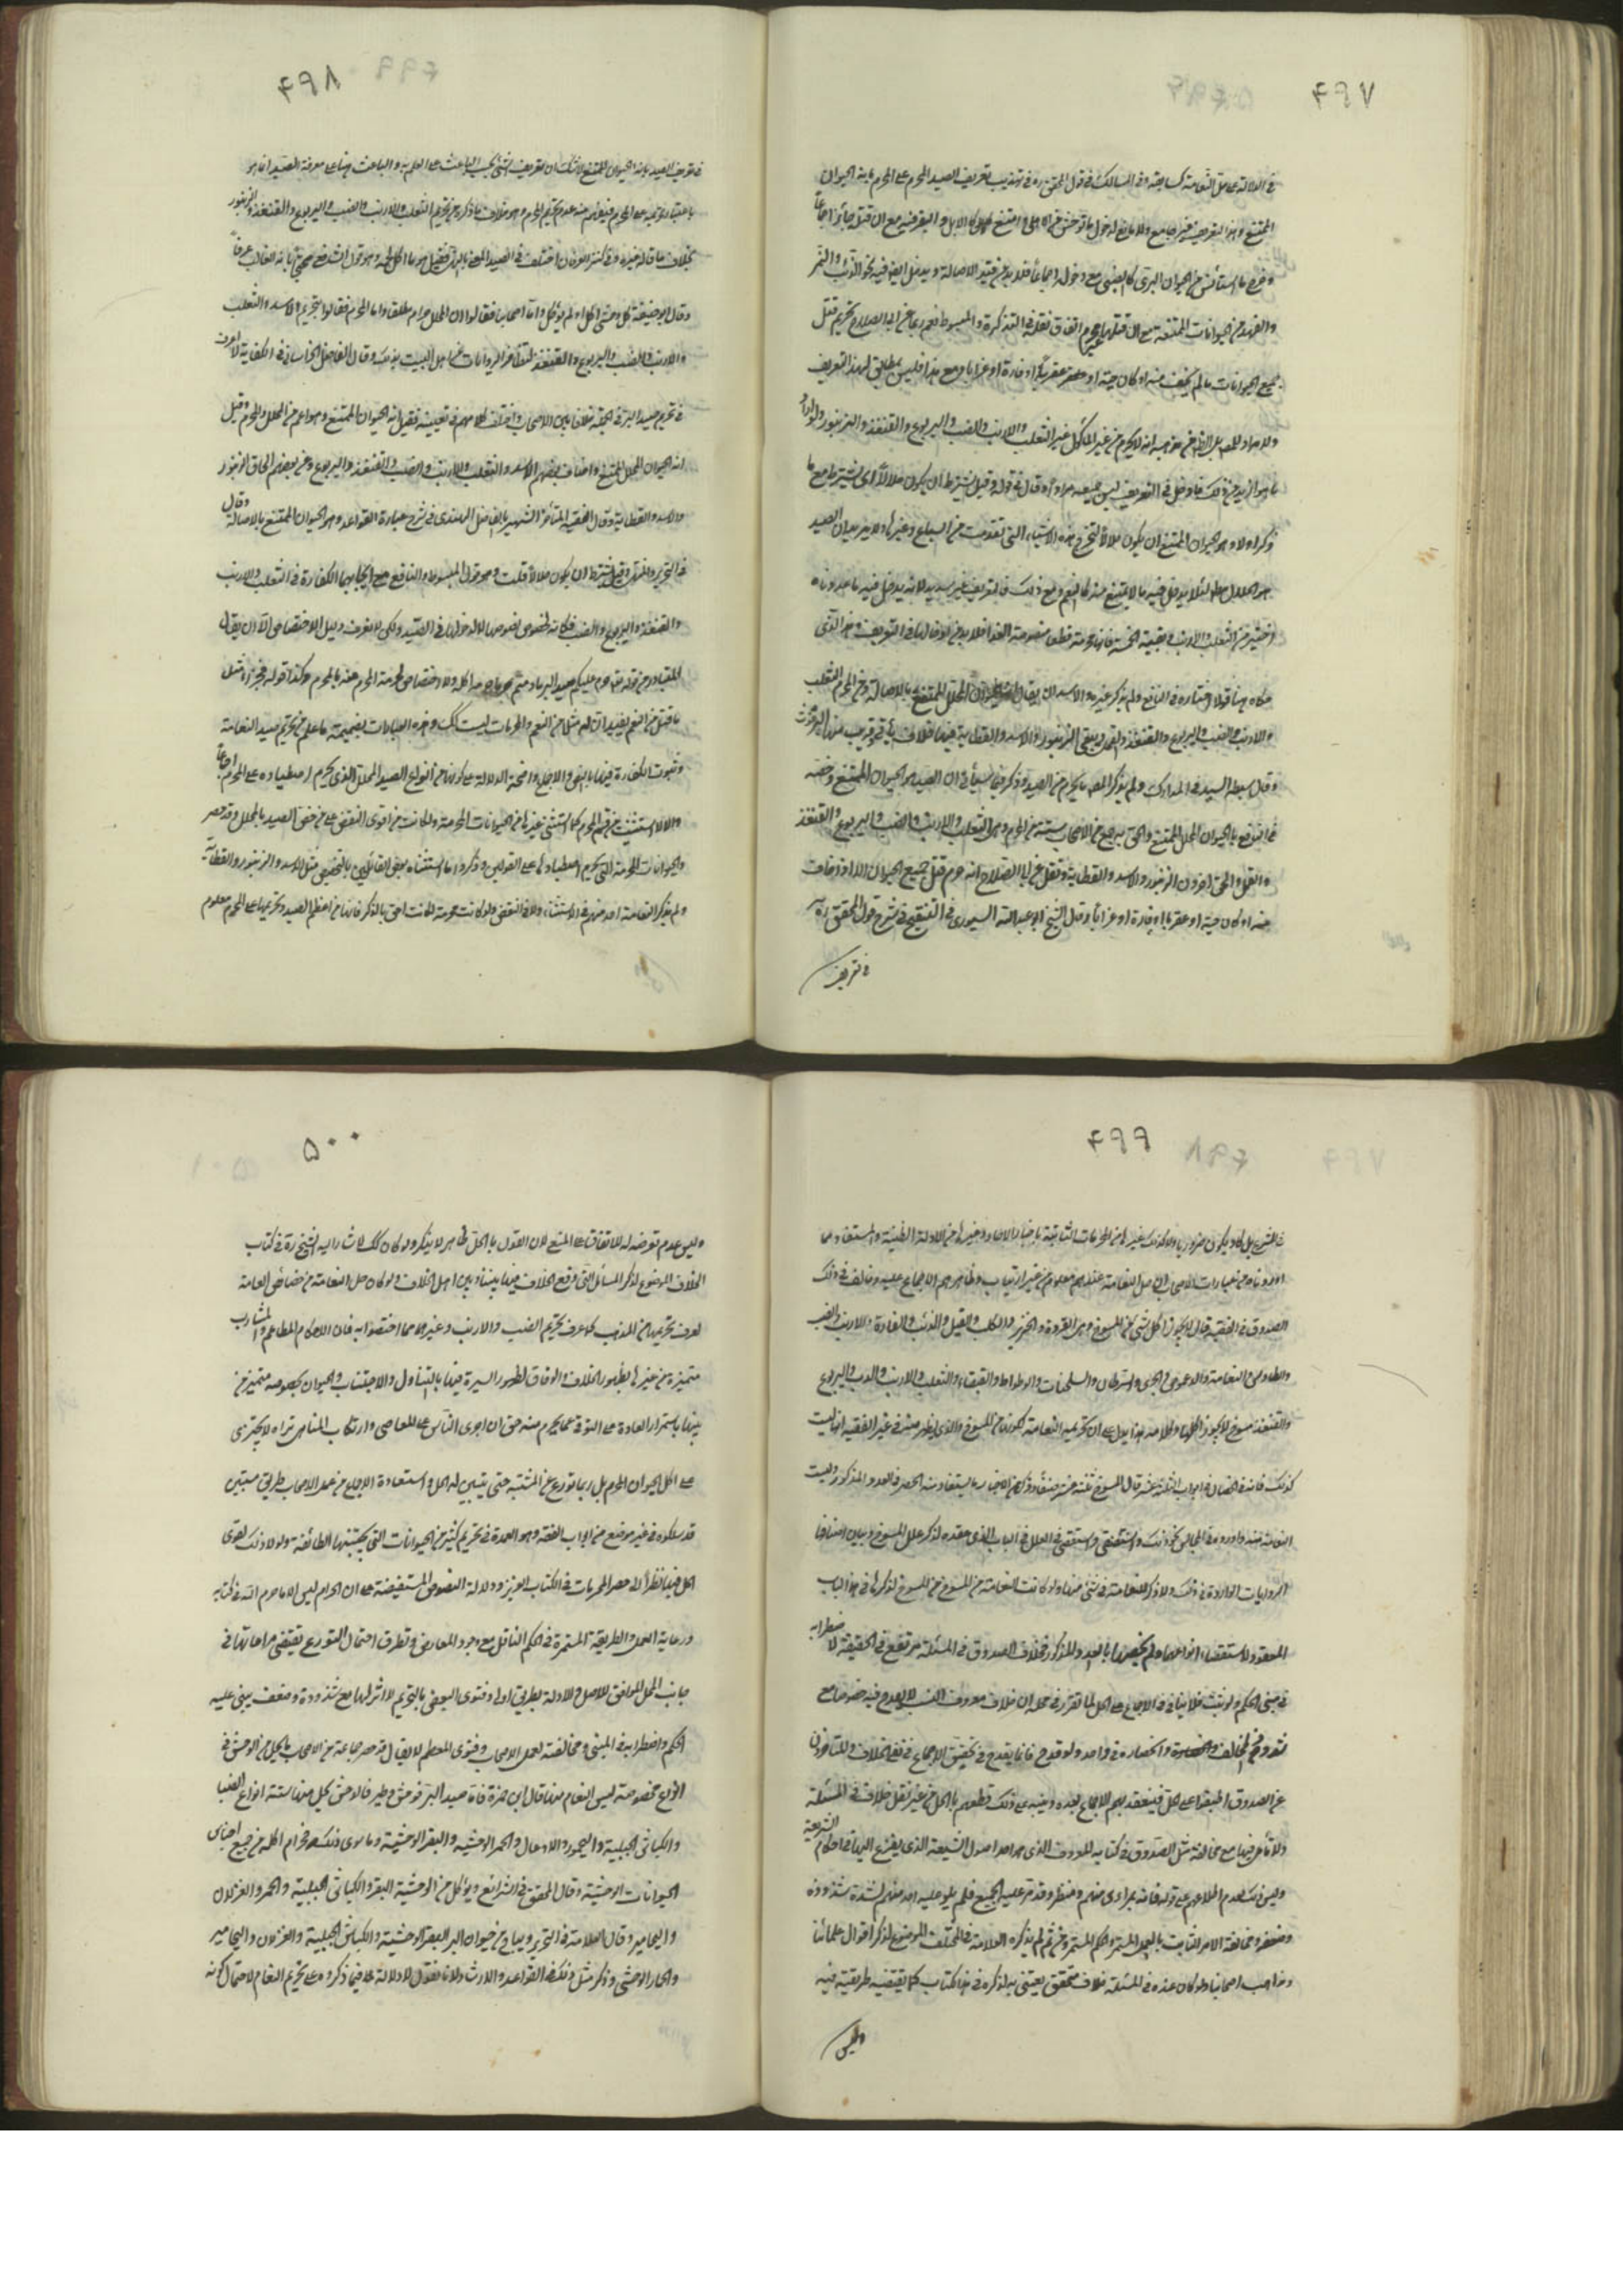 ۴۹۷
في الدلالة على حل النعامة كسابقه وفي المسالك في قول المحقق ره في تهذيب تعريف الصيد المحرم على المحرم بانه الحيوان
الممتنع وهذا التعريف غير جامع ولا مانع لدخول ما توحش من الاهلي وامتنع كالابل والبقر فيه مع ان قتله جائز اجماعا
وخرج ما استأنس من الحيوان البري كالظبي مع دخوله اجماعا فلا بد من قيد الاصالة ويدخل ايضا فيه نحو الذئب والنمر
والفهد من الحيوانات الممتنعة مع ان قتلها غير محرم اتفاقا نقله في التذكرة والمبسوط نعم ربما عن ابي الصلاح تحريم قتل
جميع الحيوانات ما لم يخف منه او كان حية او عقربا او فارة او غرابا ومع هذا فليس بمطابق لهذا التعريف
والمراد للمص بل الظاهر من مذهبه انه لا يحرم من غير المأكول غير الثعلب والارنب والضب واليربوع والقنفذ والزنبور ولو اراد
ما هو ازيد من ذلك فما دخل في التعريف ليس جميعه مرادا وقال في قوله وقيل يشترط ان يكون حلالا اي يشترط مع ما
ذكر اولا وهو الحيوان الممتنع ان يكون حلالا لتخرج هذه الاشياء التي تقدمت من السباع وغيرها ولا يرد ان الصيد
هو الحلال مطلقا لئلا يدخل فيه ما لا يمتنع منه كالنعم ومع ذلك فالتعريف غير سديد لانه يدخل فيه ما عددناه
اخيرا من الثعلب والارنب وبقية الخمسة فانها محرمة قطعا منصوصة الفداء فلا بد من ادخالها في التعريف وهو الذي
حكاه هنا قولا اختاره في النافع ولم يذكر غيره والاسد ان يقال الصيد هو الحيوان المحلل الممتنع بالاصالة ومن المحرم الثعلب
والارنب والضب واليربوع والقنفذ والقمل وبقي الزنبور والاسد والعظاية فيها خلاف يأتي قريب منها البرغوث
وقال سبطه السيد في المدارك ولم يذكر المص ما يحرم من الصيد وذكر فيما سيأتي ان الصيد هو الحيوان الممتنع وخصه
في النافع بالحيوان المحلل الممتنع والحق به جمع من الاصحاب ستة من المحرم وهي الثعلب والارنب والضب واليربوع والقنفذ
والقمل والحق اخرون الزنبور والاسد والعظاية ونقل عن ابي الصلاح انه حرم قتل جميع الحيوان الا اذا خاف
منه او كان حية او عقربا او فارة او غرابا وقال الشيخ ابو عبد الله السيوري في التنقيح في شرح قول المحقق ره
في تعريف
۴۹۸
في تعريف الصيد بانه الحيوان الممتنع لا شك ان تعريف الشيء بحسب الباعث على العلم به والباعث هنا على معرفة الصيد انما هو
باعتبار تحريمه على المحرم فيلزم منه عدم تحريم المحرم وهو خلاف ما ذكره من تحريم الثعلب والارنب والضب واليربوع والقنفذ والزنبور
بخلاف ما قاله غيره وفي كنز العرفان اختلف في الصيد المعني بالبر فقيل هو ما اكل لحمه وهو قول الشافعي محتجا بانه الغالب عرفا
وقال ابو حنيفة كل وحشي اكل او لم يؤكل واما اصحابنا فقالوا ان المحلل حرام مطلقا واما المحرم فقالوا بتحريم الاسد والثعلب
والارنب والضب واليربوع والقنفذ لتظافر الروايات عن اهل البيت بذلك وقال الفاضل الخراساني في الكفاية لا اعرف
في تحريم صيد البر في الجملة خلافا بين الاصحاب واختلف كلامهم في تعيينه فقيل انه الحيوان الممتنع وهو اعم من المحلل والمحرم وقيل
انه الحيوان المحلل الممتنع واضاف بعضهم الاسد والثعلب والارنب والضب والقنفذ واليربوع وعن بعضهم الحاق الزنبور
والاسد والعظاية وقال الفقيه المتأخر الشهير بالفاضل الهندي في شرح عبارة القواعد وهو الحيوان الممتنع بالاصالة وقال
في التحرير والمنتهى وقيل يشترط ان يكون حلالا قلت وهو قول المبسوط والنافع مع ايجابهما الكفارة في الثعلب والارنب
والقنفذ واليربوع والضب فكانه لخصوص نصوصها لا لدخولها في الصيد ولكن لا يعرف دليل الاختصاص الا ان يقال
المتبادر من قوله تعالى حرم عليكم صيد البر ما دمتم حرما هو ما اكله ولا اختصاص لحرمة المحرم هذه بالمحرم وكذا قوله فجزاء مثل
ما قتل من النعم يفيد ان له مثلا من النعم والمحرمات ليست كك وهذه العبارات بضميمة ما علم من تحريم صيد النعامة
وثبوت الكفارة فيها بالنص والاجماع واضحة الدلالة على كونها من انواع الصيد المحلل الذي يحرم اصطياده على المحرم اجماعا
والا لاستثنيت من قسم المحرم كما استثني غيرها من الحيوانات المحرمة ولكانت من اقوى النقض على من خص الصيد بالمحلل وقد حصر
والحيوانات المحرمة التي يحرم اصطيادها على القولين وذكروا ما استثناه بعض القائلين بالتخصيص مثل الاسد والزنبور والعظاية
ولم يذكر النعامة احد منهم في الاستثناء ولا في النقض ولو كانت محرمة لكانت احق بالذكر فانها من اعظم الصيد وتحريمها على المحرم معلوم
۴۹۹
الصدوق في الفقيه قال لا يجوز اكل شيء من المسوخ وهي القردة والخنزير والكلب والفيل والذئب والفارة والارنب والضب
والطاوس والنعامة والدعموص والجري والسرطان والسلحفاة والوطواط والعنقاء والثعلب والارنب والدب واليربوع
والقنفذ مسوخ لا يجوز اكلها وكلامه هذا يدل على ان تحريم النعامة لكونها من المسوخ والذي يظهر منه في غير الفقيه انها ليست
الروايات الواردة في ذلك ولا ذكر للنعامة في شيء منها ولو كانت النعامة من المسوخ لذكرها في هذا الباب
المعقود لاستقصاء انواعها ولم يخصها بالعدد المذكور فخلاف الصدوق في المسئلة مرتفع في الحقيقة لاضطرابه
في مبنى الحكم ولو ثبت فلا ينافي الاجماع على الحل لما تقرر في محله ان خلاف معروف النسب لا يقدح فيه خصوصا مع
شذوذ المخالف وانحصاره في واحد ولو قدح فانما يقدح في تحقيق الاجماع في نفي الخلاف والمتاخرون
عن الصدوق اطبقوا على الحل فينعقد بهم الاجماع بعده وينبه على ذلك قطعهم بالحل من غير نقل خلاف في المسئلة
ولا تأمل فيها مع مخالفة مثل الصدوق في كتابه المعروف الذي هو احد اصول الشيعة الذي يفزع اليها في احكام الشريعة
وليس ذلك لعدم اطلاعهم على قوله فانه بمرأى منهم ومنظر وقد مر عليه الجميع فلم يلو عليه احد منهم لشدة شذوذه
وضعفه ومخالفة الامر الثابت بالعمل المستمر والحكم المستمر ومن ثم لم يذكره العلامة في المختلف الموضوع لذكر اقوال علمائنا
ومذاهب اصحابنا ولو كان عنده في المسئلة خلاف متحقق يعتنى به لذكره في هذا الكتاب كما يقتضيه طريقته فيه
وليس
۵۰۰
وليس عدم تعرضه له للاتفاق على المنع لان القول بالحل ظاهر لا ينكر ولو كان كك لاشار اليه الشيخ ره في كتاب
الخلاف الموضوع لذكر المسائل التي وقع الخلاف فيها بيننا وبين اهل الخلاف ولو كان حل النعامة من خصائص العامة
لعرف تحريمها من المذهب كما عرف تحريم الضب والارنب وغيرهما مما اختصوا به فان احكام المطاعم والمشارب
متميزة عن غيرها بظهور الخلاف والوفاق لظهور السيرة فيها بالتناول والاجتناب والحيوان بخصوصه متميز من
بينها باستمرار العادة على التوقي عما يحرم منه حتى ان اجرى الناس على المعاصي وارتكاب المناهي تراه لا يجتري
على اكل الحيوان المحرم بل ربما تورع عن المشتبه حتى يتبين له الحل واستفادة الاجماع من عمل الاصحاب طريق مستبين
قد سلكوه في غير موضع من ابواب الفقه وهو العمدة في تحريم كثير من الحيوانات التي يجتنبها الطائفة ولولا ذلك لقوى
الحل فيها نظرا الى حصر المحرمات في الكتاب العزيز ودلالة النصوص المستفيضة على ان الحرام ليس الا ما حرم الله في كتابه
ورعاية العمل والطريقة المستمرة في الحكم الناقل مع وجود المعارض وتطرق احتمال التورع تقتضي مراعاتها في
جانب الحل الموافق للاصل والادلة بطريق اولى وفتوى البعض بالتحريم لا اثر لها مع شذوذه وضعف يبنى عليه
الحكم واضطرابه في المبنى ومخالفته لعمل الاصحاب وفتوى المعظم لا يقال قد حصر جماعة من الاصحاب ما يحل من الوحش في
انواع مخصوصة ليس النعام منها قال ابن حمزة فاما صيد البر فوحش وطير فالوحش يحل منها ستة انواع الظبا
والكباش الجبلية واليحمور والاوعال والحمر الوحشية والبقر الوحشية وما سوى ذلك فحرام اكله من جميع اجناس
الحيوانات الوحشية وقال المحقق في الشرائع ويؤكل من الوحشية البقر والكباش الجبلية والحمر والغزلان
واليحامير وقال العلامة في التحرير ويباح من حيوان البر البقر الوحشية والكباش الجبلية والغزلان واليحامير
والحمار الوحشي وذكر مثل ذلك في القواعد والارشاد لانا نقول لا دلالة فيما ذكروه على تحريم النعام لاحتمال كونه